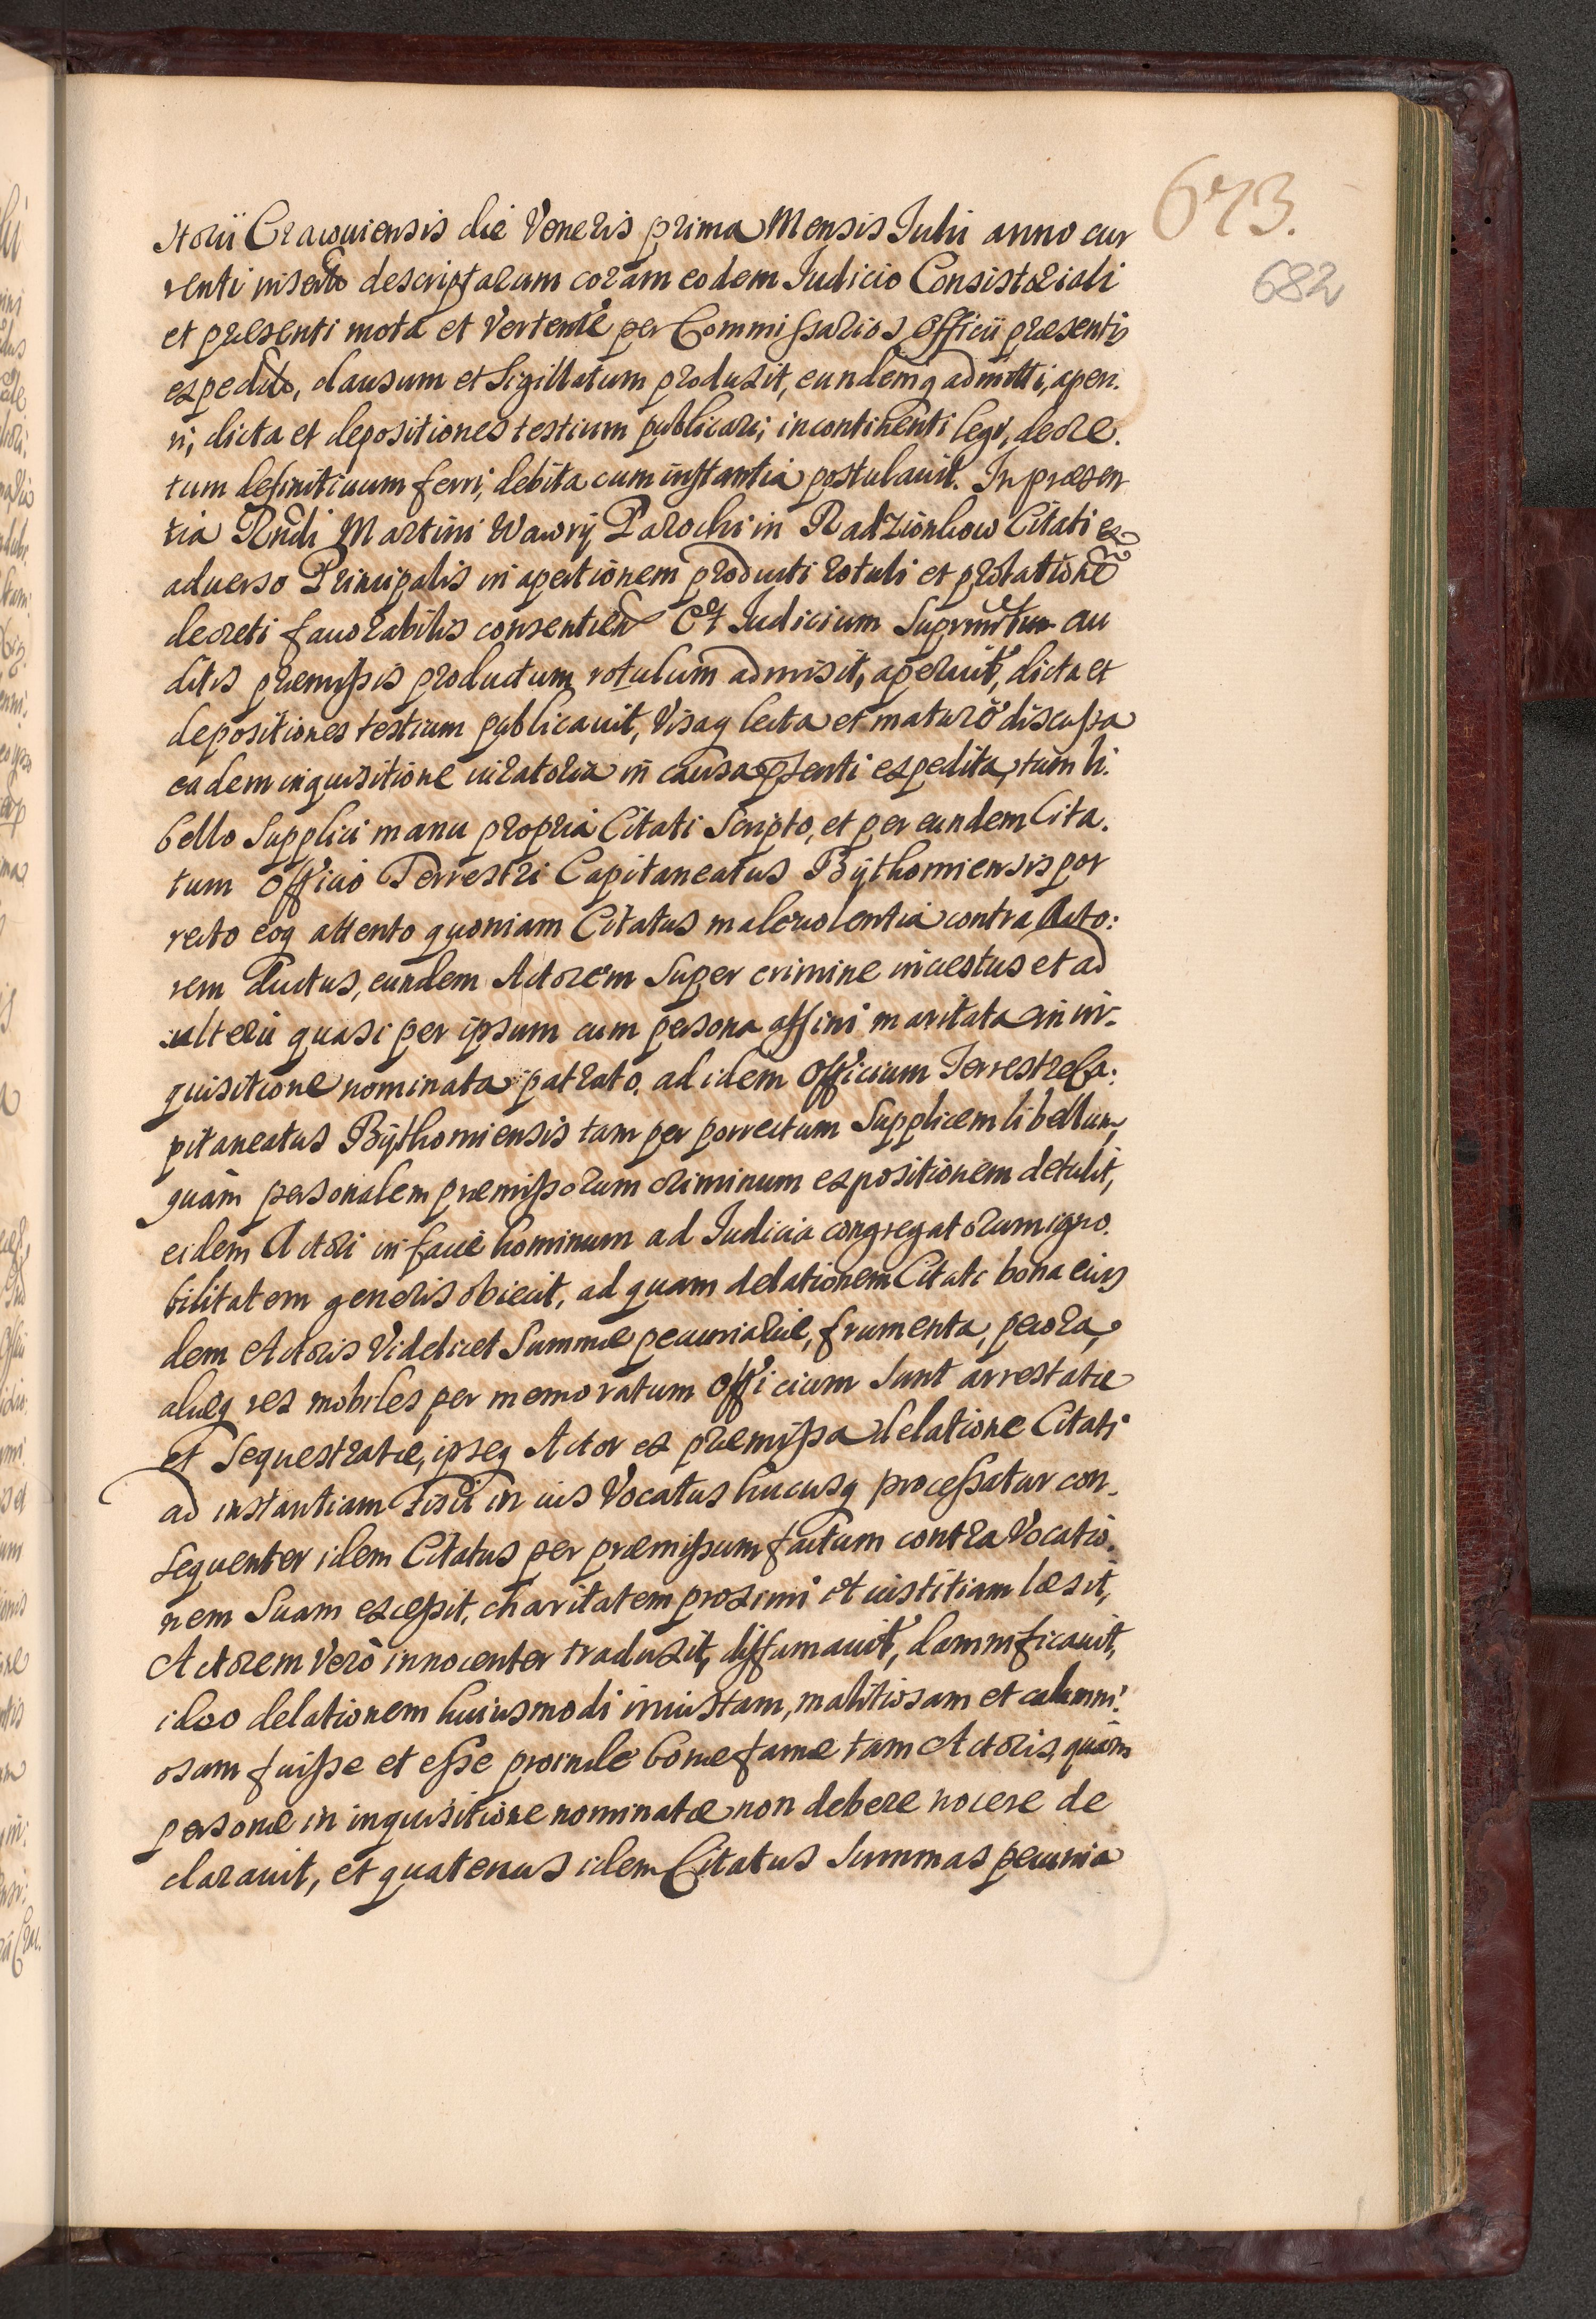 673.
682
storii Cracoviensis die Veneris prima Mensis Julii anno cur
renti inserto descriptarum coram eodem Judicio Consistoriali
et præsenti mota et vertente per Commissarios Officii præsentis
expedito, clausum et Sigillatum produxit, eundemq admitti, aperi.
ri, dicta et depositiones testium publicari, incontinenti legi, decre.
tum definitiuum ferri, debita cum instantia postulauit. In præsen
tia Rndi Martini Wawrÿ Parochi in Radzionkow Citati ex
aduerso Principalis in apertionem producti rotuli et prolationē
decreti fauorabilis consentien Et Judicium au
ditis præmissis productum rotulum admisit, aperuit, dicta et
depositiones testium publicauit, Visaq lecta et maturè discussa
eadem inquisitione iuratoria in causa pñti expedita, tum li.
bello Supplici manu propria Citati Scripto, et per eundem Cita.
tum Officio Terrestri Capitaneatus Bÿthomiensis por
recto eoq attento quoniam Citatus maleuolentia contra Acto:
rem ductus, eundem Actorem Super crimine incestus et ad
ulterii quasi per ipsum cum persona affini maritata in in-
quisitione nominata patrato, ad idem Officium Terrestre Ca:
pitaneatus Bÿthomiensis tam per porrectum Supplicem libellum,
quàm personalem præmissorum criminum expositionem detulit,
eidem Actori in facie hominum ad Judicia congregatorum igno.
bilitatem generis obiecit, ad quam delationem Citati bona eius
dem Actoris Videlicet Summæ pecuniariæ, frumenta, pecora,
aliæq res mobiles per memoratum Officium Sunt arrestatæ
et Sequestratæ, ipseq Actor ex præmissa delatione Citati
ad instantiam Fisci in ius Vocatus hucusq processatur con.
sequenter idem Citatus per præmissum factum contra Vocatio.
nem Suam excessit, charitatem proximi et iustitiam læsit,
Actorem Verò innocenter traduxit, diffamauit, damnificauit,
ideo delationem huiusmodi iniustam, malitiosam et calumni:
osam fuisse et esse proinde bonæ famæ tam Actoris, quàm
personæ in inquisitione nominatæ non debere nocere de
clarauit, et quatenus idem Citatus Summas pecunia